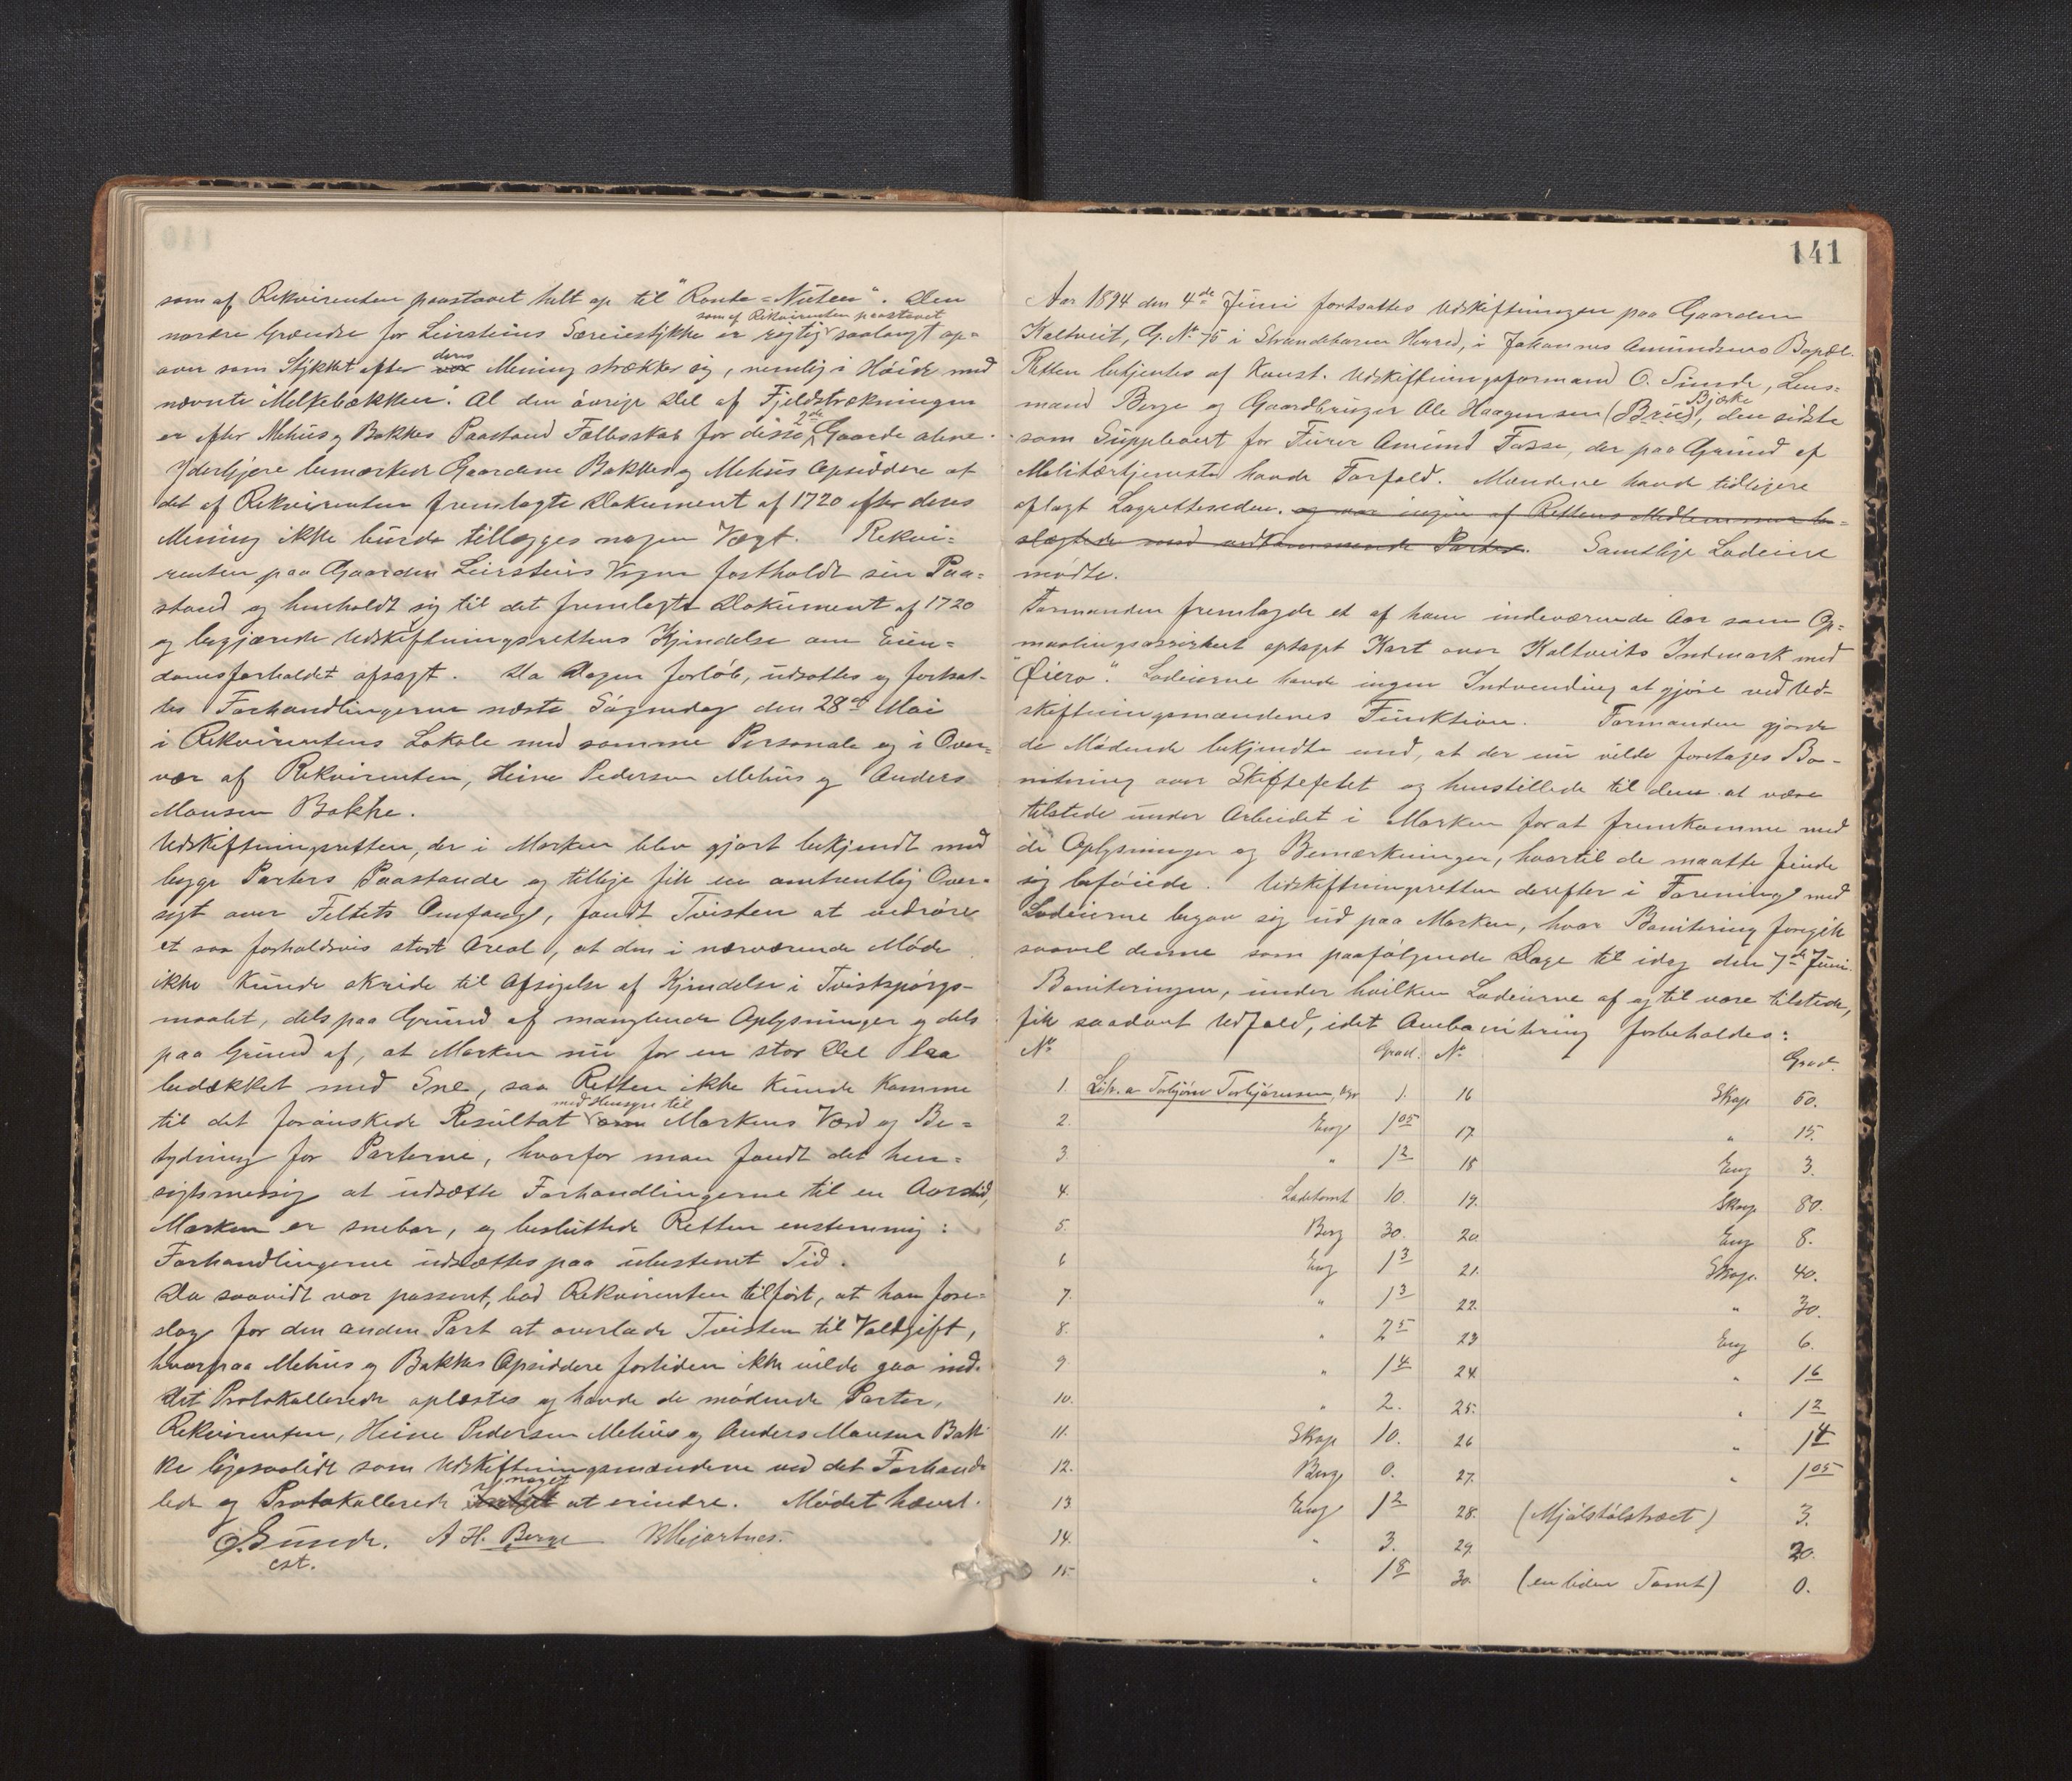 som af Rekvirenten paastaaet helt op til "Ronte=Nuten". Den
som af Rekvirenten paastaaet
nordre Grændse for Leirsteins Særeiestykke er rigtig saalangt op=
over som Stykket efter deres Mening strækker sig, nemlig i Høide med
nævnte "Melkebækken". Al den øvrige Del af Fjeldstrækningen
er efter Mehus og Bakkes Paastand Fællesskab for disse 2de Gaarde alene.
Yderligere bemærkede Gaardene Bakkes og Mehus Opsiddere at
det af Rekvirenten fremlagte Dokument af 1720 efter deres
Mening ikke burde tillægges nogen Vægt. Rekvi=
renten paa Gaarden Leirsteins Vegne fastholdt sin Paa=
stand og henholdt sig til det fremlagte Dokument af 1720
og begjærede Udskiftningsrettens Kjendelse om Eien=
domsforholdet afsagt. Da Dagen forløb, udsattes og fortsat=
tes Forhandlingerne næste Søgnedag den 28de Mai
i Rekvirentens Lokale med samme Personale og i Over=
vær af Rekvirenten, Heine Pedersen Mehus og Anders
Monsen Bakke.
Udskiftningsretten, der i Marken blev gjort bekjendt med
begge Parters Paastande og tillige fik en omtrentlig Over=
sigt over Feltets Omfang, fandt Tvisten at vedrøre
et saa forholdsvis stort Areal, at den i nærværende Møde
ikke kunde skride til Afsigelse af Kjendelse i Tvistspørgs=
maalet, dels paa Grund af manglende Oplysninger og dels
paa Grund af, at Marken nu for en stor Del laa
bedækket med Sne, saa Retten ikke kunde komme
med Hensyn til
til det forønskede Resultat om Markens Værd og Be=
tydning for Parterne, hvorfor man fandt det hen=
sigtsmessig at udsætte Forhandlingerne til en Aarstid,
Marken er snebar, og besluttede Retten enstemmig:
Forhandlingerne udsættes paa ubestemt Tid.
Da saavidt var passeret, bad Rekvirenten tilført, at han fore=
slog for den anden Part at overlade Tvisten til Voldgift,
hvorpaa Mehus og Bakkes Opsiddere fortiden ikke vilde gaa ind.
Det Protokollerede oplæstes og havde de mødende Parter,
Rekvirenten, Heine Pedersen Mehus og Anders Monsen Bak=
ke ligesaalidt som Udskiftningsmændene ved det Forhand=
lede og Protokollerede noget at erindre. Mødet hævet.
O. Sunde. A H. Berge
cst.
141
Aar 1894 den 4de Juni fortsattes Udskiftningen paa Gaarden
Kaltveit, G. No 75 i Strandebarm Herred, i Johannes Amundsens Bopæl.
Retten betjentes af Konst. Udskiftningsformand O. Sunde, Lens=
Bjøke
mand Berge og Gaardbruger Ole Haagensen (Brud), den sidste
som Suppleant for Furer Amund Fosse, der paa Grund af
Militærtjeneste havde Forfald. Mændene havde tidligere
aflagt Lagretteseden. og var ingen af Rettens Medlemmer be=
slægtede med vedkommende Parter. Samtlige Lodeiere
mødte.
Formanden fremlagde et af ham indeværende Aar som Op=
maalingsassistent optaget Kart over Kaltveits Indmark med
"Øiero". Lodeierne havde ingen Indvending at gjøre ved Ud=
skiftningsmændenes Funktion. Formanden gjorde
de Mødende bekjendte med, at der nu vilde foretages Bo=
nitering over Skiftefeltet og henstillede til dem at være
tilstede under Arbeidet i Marken for at fremkomme med
de Oplysninger og Bemærkninger, hvortil de maatte finde
sig beføiede. Udskiftningsretten derefter i Forening med
Lodeierne begav sig ud paa Marken, hvor Bonitering foregik
saavel denne som paafølgende Dage til idag den 7de Juni.
Boniteringen, under hvilken Lodeierne af og til vare tilstede,
fik saadant Udfald, idet Ombonitering forbeholdes:
No Grad. No Grad.
1. Litr. a Torbjørn Torbjørnsen, 1. 16 Skog 50.
2. Eng 1 05 17 " 15.
3. " 1 2 18 Eng 3.
4. Ladetomt 10. 19. Skog 80.
5. Berg 30. 20. Eng 8.
6 Eng 1 3 21. Skog. 40.
7. " 1 3 22. " 30.
8. " 2 5 23 Eng 6.
9 " 1 4 24. " 1 6
10. " 2. 25. " 1 2
11. Skog 10. 26 " 1 4
12. Berg 0. 27. " 1 05
13 Eng 1 2 28. (Mjølstølstræet) 3.
14. " 3. 29. 20.
15 " 1 8 30. (en liden Tomt) 0.